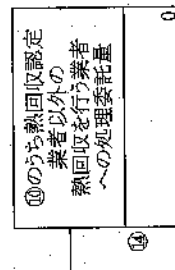 ⑩のうち熱回収認定
業者以外の
熱回収を行う業者
への処理委託量
⑭
0